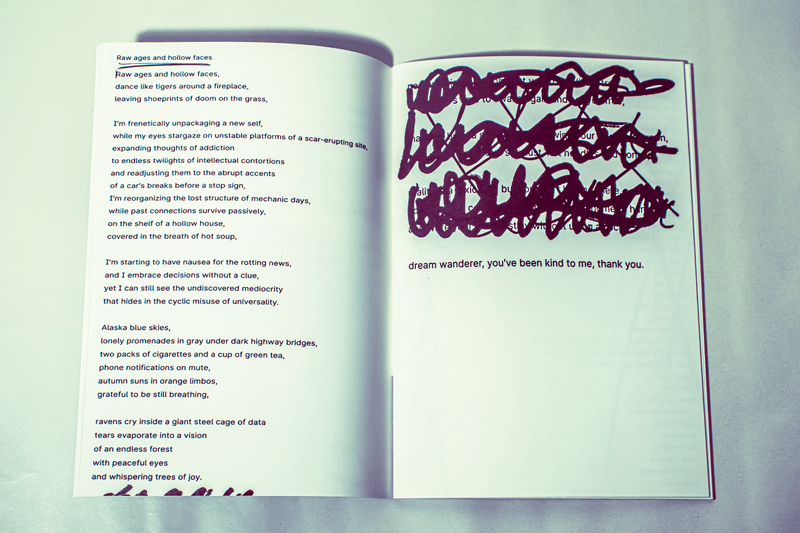 Raw ages and hollow faces
Raw ages and hollow faces,
dance like tigers around a fireplace,
leaving shoeprints of doom on the grass,
I'm frenetically unpackaging a new self,
while my eyes stargaze on unstable platforms of a scar-erupting site,
expanding thoughts of addiction
to endless twilights of intellectual contortions
and readjusting them to the abrupt accents
of a car's breaks before a stop sign,
I'm reorganizing the lost structure of mechanic days,
while past connections survive passively,
on the shelf of a hollow house,
covered in the breath of hot soup,
I'm starting to have nausea for the rotting news,
and I embrace decisions without a clue,
yet I can still see the undiscovered mediocrity
that hides in the cyclic misuse of universality.
Alaska blue skies,
lonely promenades in gray under dark highway bridges,
two packs of cigarettes and a cup of green tea,
phone notifications on mute,
autumn suns in orange limbos,
grateful to be still breathing,
ravens cry inside a giant steel cage of data
tears evaporate into a vision
of an endless forest
with peaceful eyes
and whispering trees of joy.
dream wanderer, you've been kind to me, thank you.